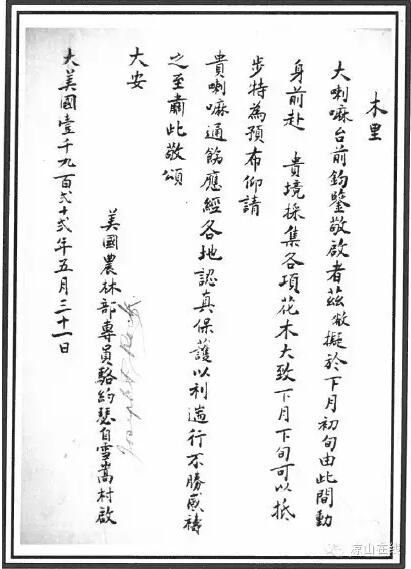 木里
大喇嘛台前鈞鑒敬啟者茲敝擬於下月初旬由此間動
身前赴 貴境採集各項花木大致下月下旬可以抵
步特為預布仰請
貴喇嘛通飭應經各地認真保護以利遄行不勝感禱
之至肅此敬頌
大安
美國農林部專員駱約瑟自雪嵩村啟
大美國壹千九百弍十弍年五月三十一日
凉山在线